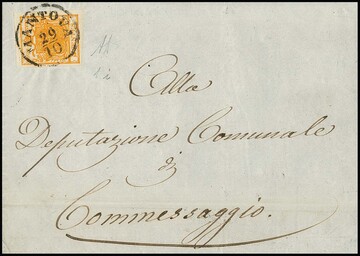 MANTOVA
29
10
Alla
Deputazione Comunale
di
Commessaggio.